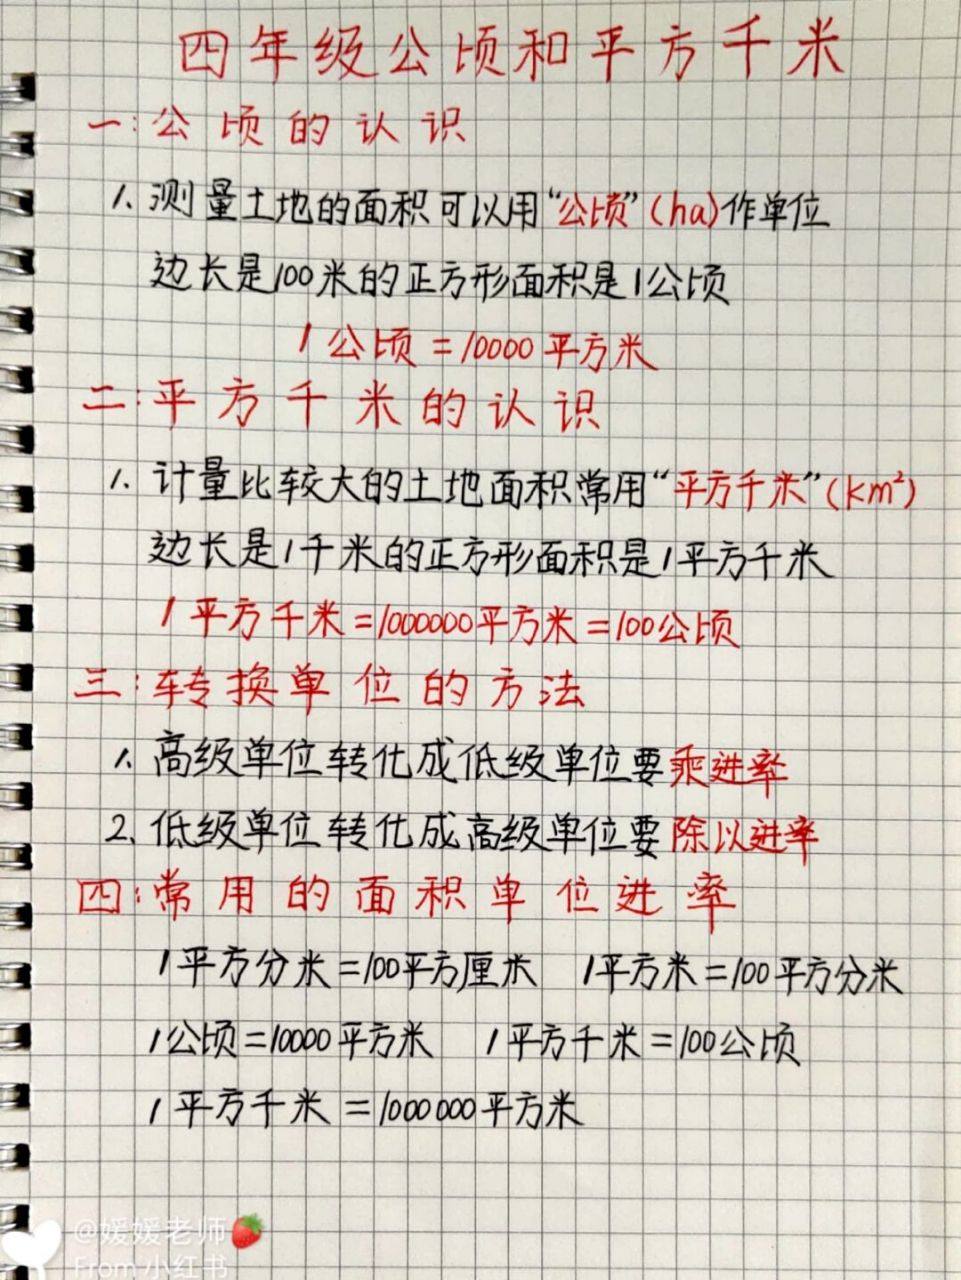 四年级公顷和平方千米
一:公顷的认识
1、测量土地的面积可以用“公顷”(ha)作单位
边长是100米的正方形面积是1公顷
1公顷=10000平方米
二:平方千米的认识
1、计量比较大的土地面积常用“平方千米”(km²)
边长是1千米的正方形面积是1平方千米
1平方千米=1000000平方米=100公顷
三:转换单位的方法
1、高级单位转化成低级单位要乘进率
2、低级单位转化成高级单位要除以进率
四:常用的面积单位进率
1平方分米=100平方厘米 1平方米=100平方分米
1公顷=10000平方米 1平方千米=100公顷
1平方千米=1000000平方米
@媛媛老师🍓
From 小红书